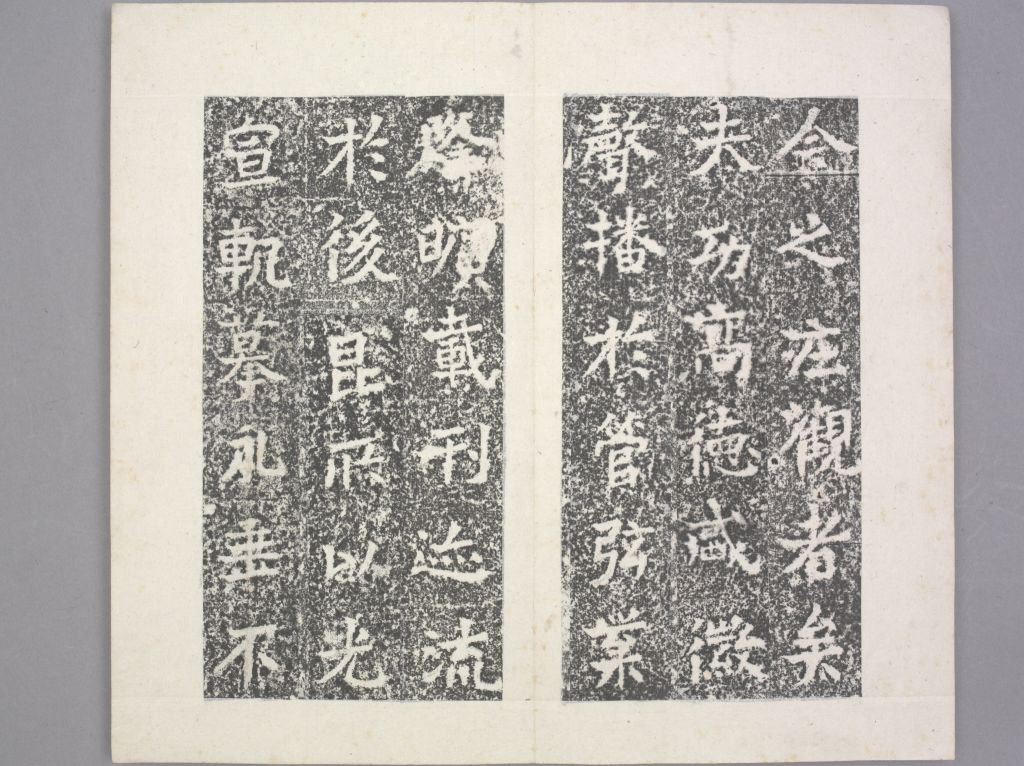 之觀者矣
夫功高德咸徽
聲播於管弦業
載刊迹流
於後昆所以光
宣軌摹永垂不